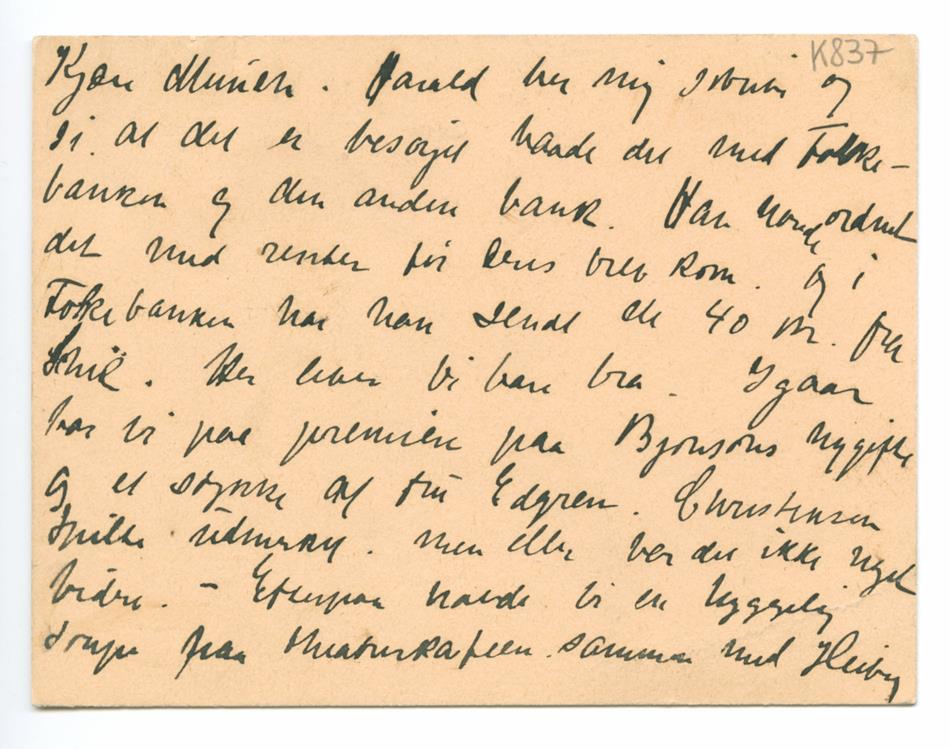 K837
Kjære Munch. Harald ber mig skrive og
si at det er besørget baade det med Folke-
banken og den anden bank. Han havde ordnet
det med renter før Deres brev kom. og i
Folkebanken har han sendt de 40 kr. fra
. Her lever vi bare bra. Igaar
var vi paa premiere paa Bjønsons nygifte
og et stykke af fru Edgren. Christensen
spilte udmerket. men eller var det ikke noget
vidre. – Efterpaa havde vi en hyggelig
soupe paa theaterkafeen sammen med Heiberg